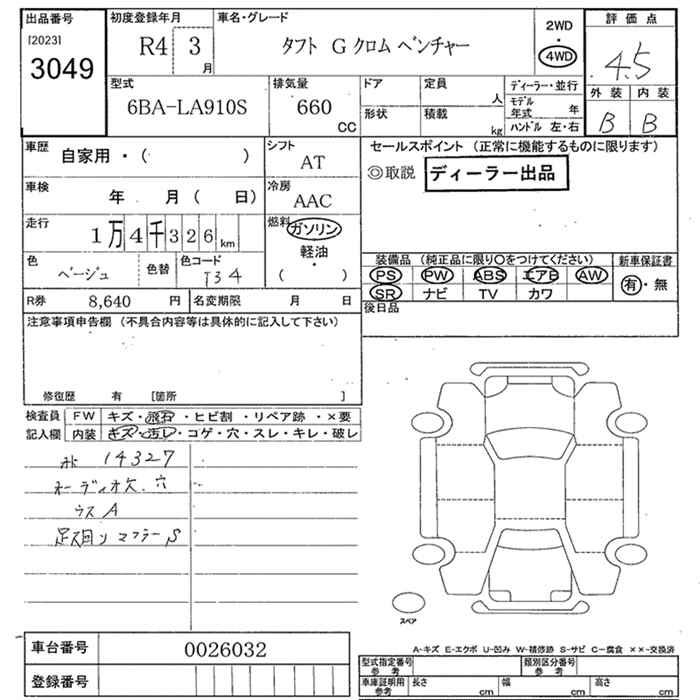 出品番号 初度登録年月 車名・グレード 2WD・4WD 評価点
[2023] 3049 R4 3月 タフト G クロム ベンチャー 4.5
型式 排気量 ドア 定員 人 ディーラー・並行 外装 内装
6BA-LA910S 660 CC 形状 積載 kg モデル年式 年 B B
ハンドル 左・右
車歴 自家用・( ) シフト AT セールスポイント (正常に機能するものに限ります)
◎取説 ディーラー出品
車検 年 月 ( 日) 冷房 AAC
走行 1万4千326km 燃料 ガソリン
軽油・
( )
色 ベージュ 色替 色コード T34
装備品 (純正品に限り○をつけてください) 新車保証書
PS PW ABS エアB AW 有・無
SR ナビ TV カワ
R券 8,640 円 名変期限 月 日
後日品
注意事項申告欄 (不具合内容等は具体的に記入して下さい)
修復歴 有 [箇所 ]
検査員 FW キズ・飛石・ヒビ割・リペア跡・×要
記入欄 内装 キズ・汚レ・コゲ・穴・スレ・キレ・破レ
14327
オーディオ欠、穴
ウスA
足廻り マフラーS
スペア
車台番号 0026032
登録番号
A-キズ E-エクボ U-凹み W-補修跡 S-サビ C-腐食 ××-交換済
型式指定番号 参考 類別区分番号 参考
車庫証明用 参考 長さ cm 幅 cm 高さ cm